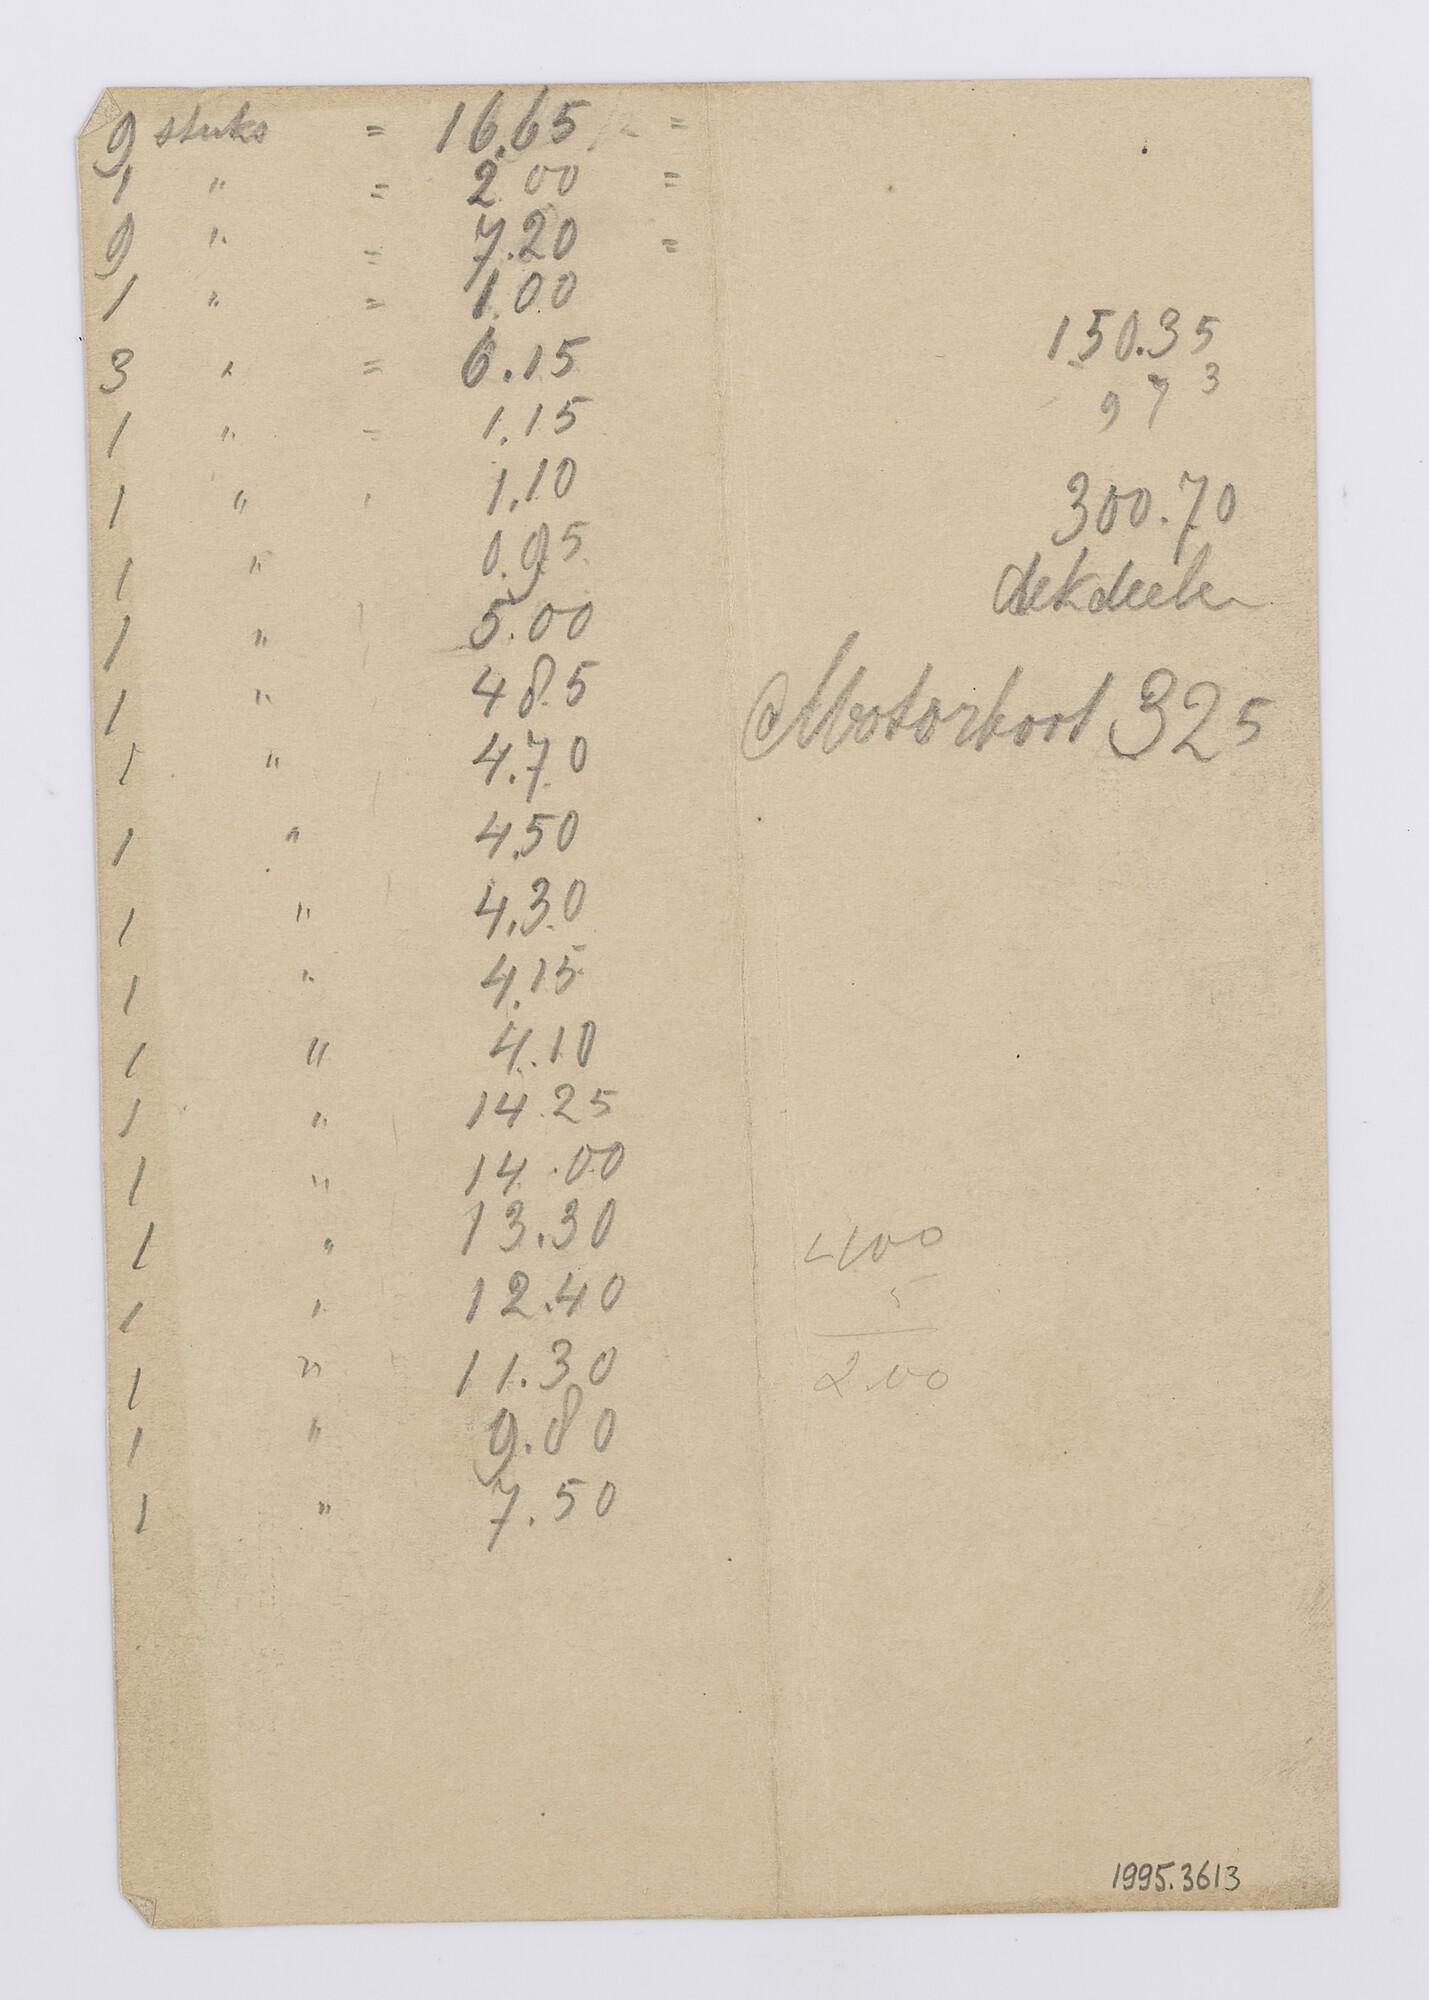 9 stuks = 16.65 =
1 " = 2.00 =
9 " = 7.20 =
1 " = 1.00
3 " = 6.15
1 " = 1.15
1 " 1.10
1 " 0.95
1 " 5.00
1 " 4.85
1 " 4.70
1 " 4.50
1 " 4.30
1 " 4.15
1 " 4.10
1 " 14.25
1 " 14.00
1 " 13.30
1 " 12.40
1 " 11.30
1 " 9.80
1 " 7.50
150.35
97 3
300.70
dekdeelen
Motorboot 325
400
5
2.00
1995.3613